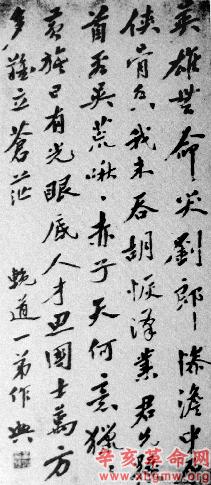 英雄無命哭劉郎慘澹中原
俠骨香我未吞胡恢漢業君先懸
首看吳荒啾々赤子天何意獵々
黃旗日有光眼底人才思國士萬方
多難立蒼茫 輓道一弟作 興
辛亥革命网
www.xhgmw.org